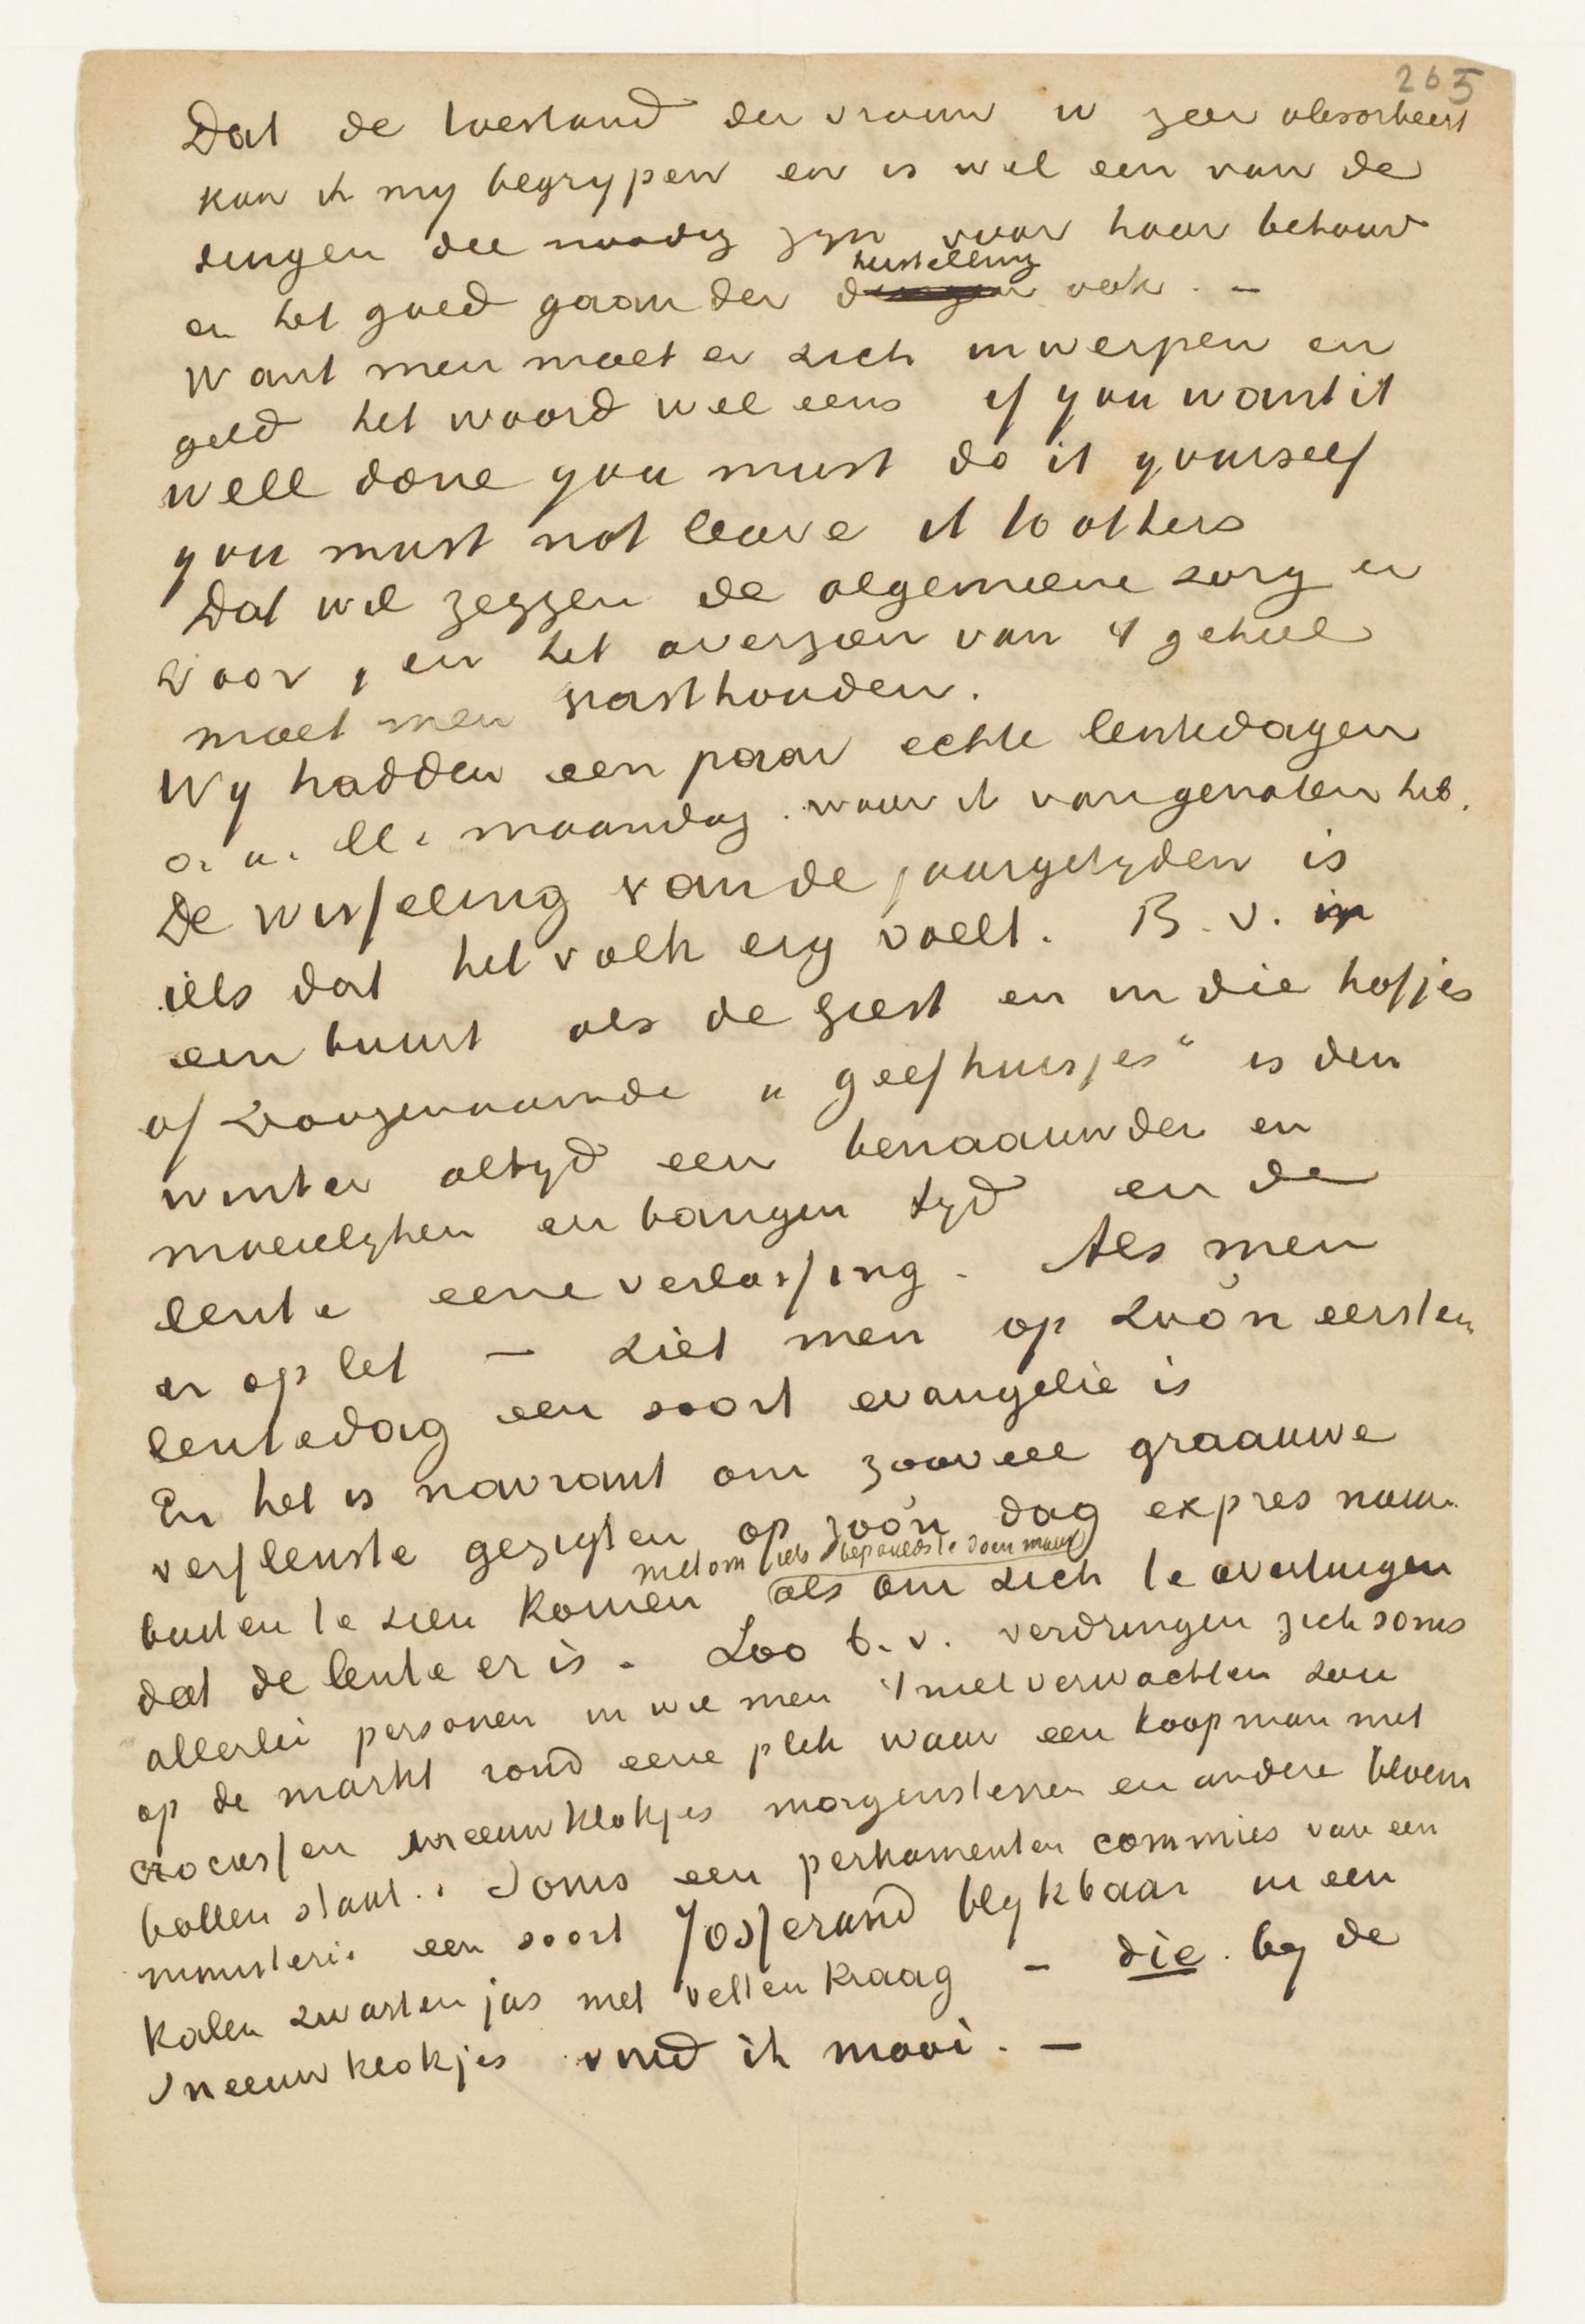 265
Dat de toestand der vrouw u zeer absorbeert
kan ik my begrypen en is wel een van de
dingen die noodig zyn voor haar behoud
herstelling
en het goed gaan der dingen ook. —
Want men moet er zich inwerpen en
geld het woord wel eens if you want it
well done you must do it yourself
you must not leave it to others
Dat wil zeggen de algemeene zorg er
voor, en het overzien van 't geheel
moet men vasthouden.
Wy hadden een paar echte lentedagen
o.a. ll. maandag. waar ik van genoten heb.
De wisseling van de jaargetyden is
iets dat het volk erg voelt. B.v. in
een buurt als de Geest en in die hofjes
of zoogenaamde „geefhuisjes“ is den
winter altyd een benaauwder en
moeielyken en bangen tyd en de
lente eene verlossing. Als men
er op let — ziet men op zoo'n eersten
lentedag een soort evangelie is
En het is navrant om zooveel graauwe
verflenste gezigten op zoo'n dag expres naar
niet om iets bepaalds te doen maar
buiten te zien komen als om zich te overtuigen
dat de lente er is. Zoo b.v. verdringen zich soms
allerlei personen in wie men 't niet verwachten zou
op de markt rond eene plek waar een koopman met
crocussen sneeuwklokjes morgensterren en andere bloem
bollen staat. Soms een perkamenten commies van een
ministerie een soort Josserand blykbaar in een
kalen zwarten jas met vetten kraag — die by de
Sneeuwklokjes vind ik mooi. —